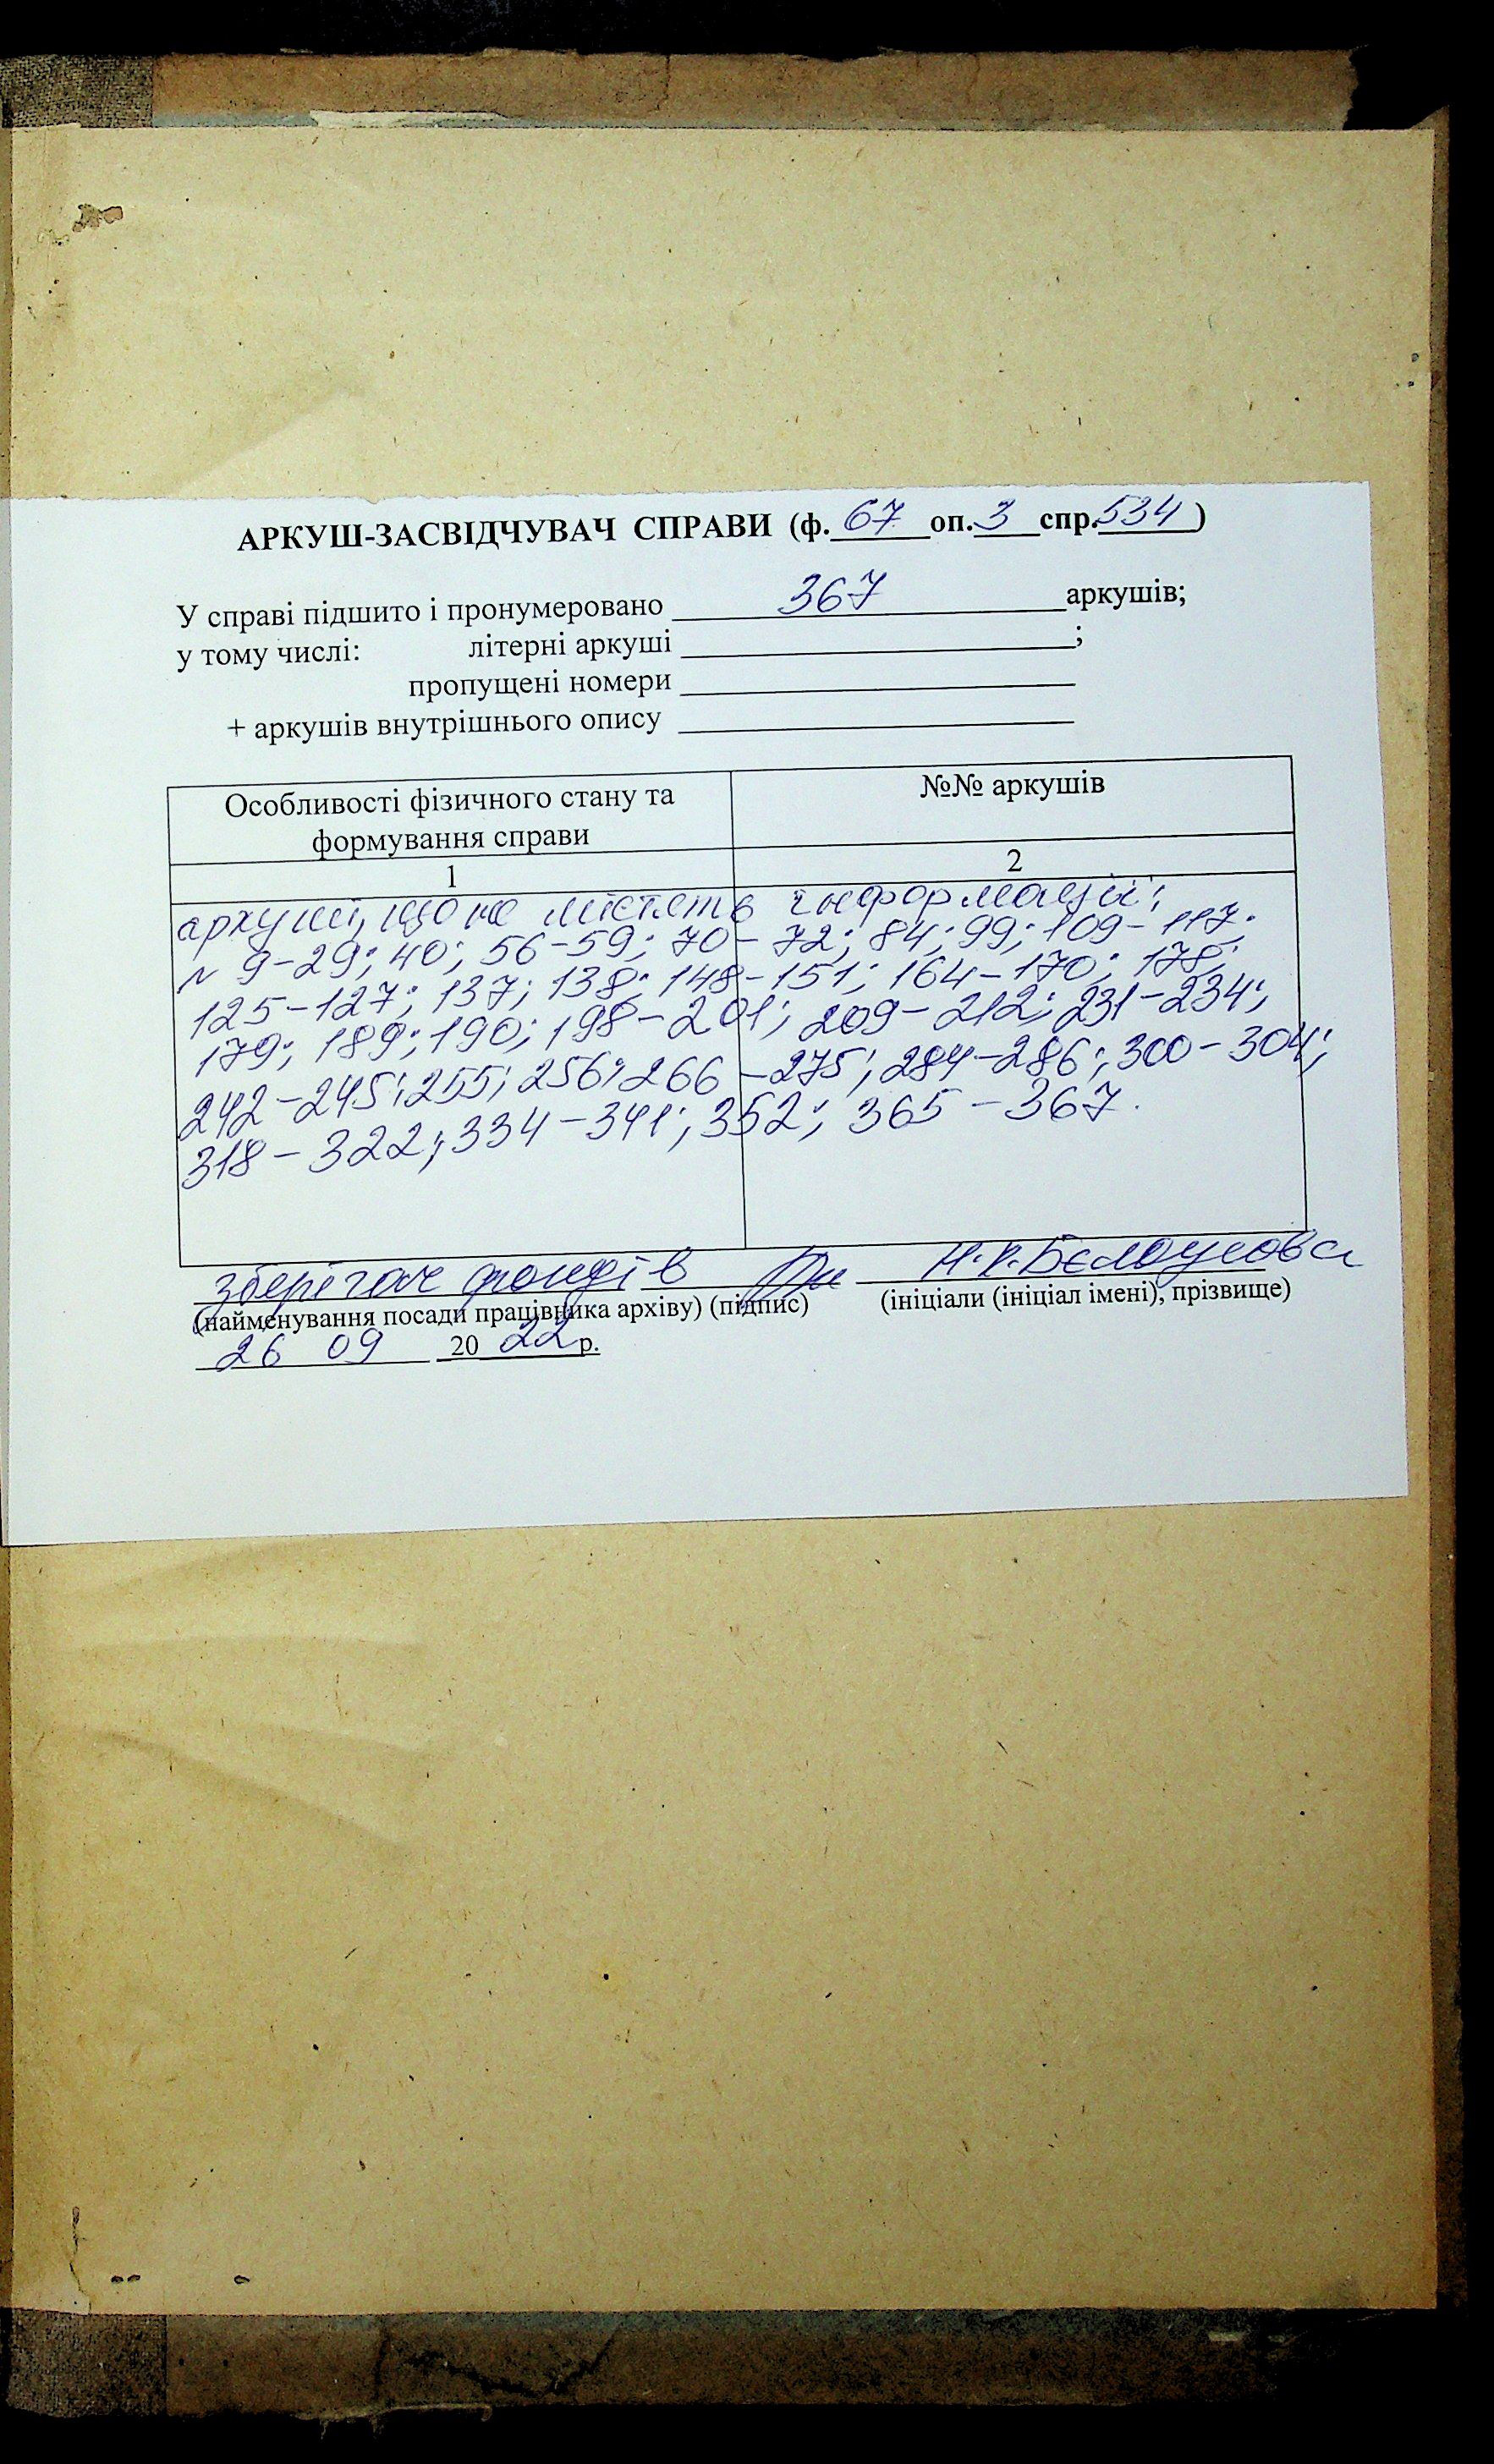 АРКУШ-ЗАСВІДЧУВАЧ СПРАВИ (ф. 67 оп. 3 спр. 534)
У справі підшито і пронумеровано 367 аркушів;
у тому числі: літерні аркуші ;
пропущені номери
+ аркушів внутрішнього опису
Особливості фізичного стану та формування справи
№№ аркушів
1
2
аркуші, що не містять інформації:
№ 9-29; 40; 56-59; 70-72; 84; 99; 109-117;
125-127; 137; 138; 148-151; 164-170; 178;
179; 189; 190; 198-201; 209-212; 231-234;
242-245; 255; 256; 266-275; 284-286; 300-304;
318-322; 334-341; 352; 365-367.
зберігач фондів Бєлоусова
(найменування посади працівника архіву) (підпис) (ініціали (ініціал імені), прізвище)
26 09 2022р.